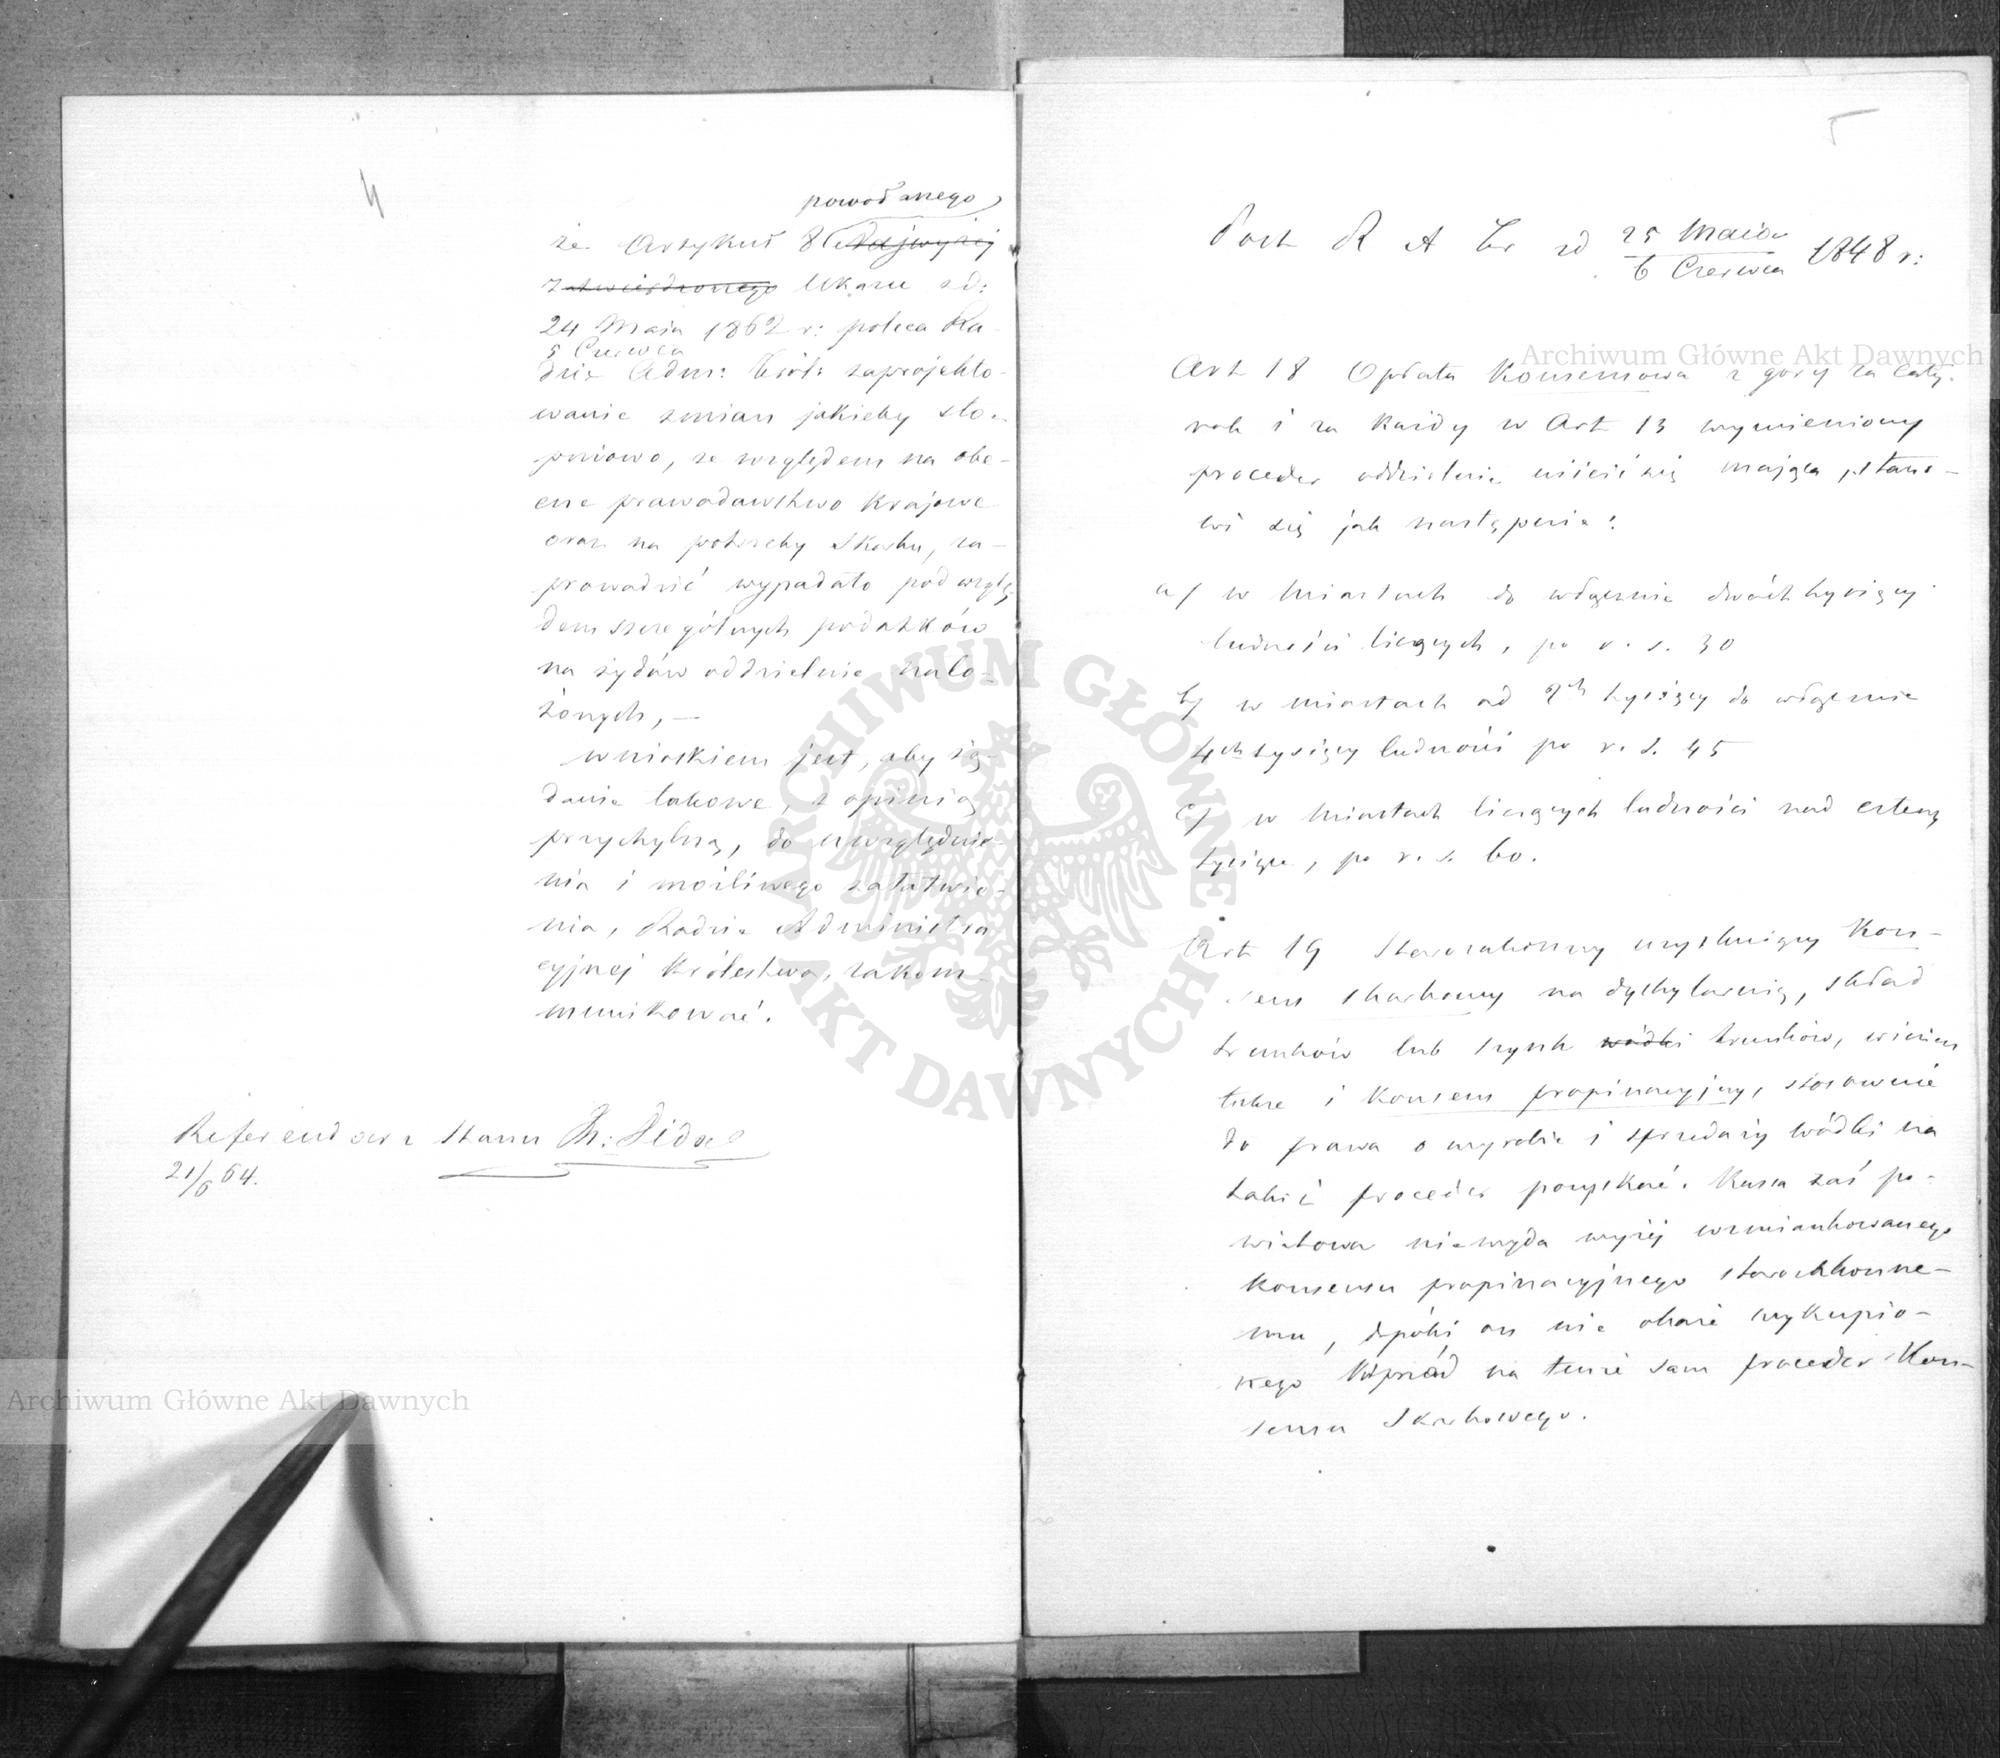 4
powołanego
że Artykuł 8 Najwyżej
zatwierdzonego Ukazu zd:
24 Maja 1862 r: poleca Ra-
5 Czerwca
dzie Adm: Król: zaprojekto-
wanie zmian jakieby sto-
pniowo, ze względem na obe-
cne prawodawstwo Krajowe
oraz na potrzeby Skarbu, za-
prowadzić wypadało pod wzglę-
dem szczególnych podatków
na żydów oddzielnie nało-
żonych, —
wnioskiem jest, aby żą-
danie takowe, z opinią
przychylną, do uwzględnie-
nia i możliwego załatwie-
nia, Radzie Administra
cyjnej Królestwa, zakom-
munikować.
Referendarz Stanu
21/6 64.
5
Post R A Kr zd 25 Maja
6 Czerwca 1848 r:
Art 18 Opłata Konsensowa z góry za cały
rok i za każdy w Art 13 wymieniony
proceder oddzielnie uiścić się mająca, stano-
wi się jak następnie:
a/ w miastach do włącznie dwóch tysięcy
ludności liczących, po r. s. 30
b/ w miastach od 2ch tysięcy do włącznie
4ch tysięcy ludności po r. s. 45
c/ w miastach liczących ludności nad cztery
tysiące, po r. s. 60.
Art 19 Starozakonny uzyskujący Kon-
sens skarbowy na dystylarnią, skład
trunków lub szynk wódki trunków, winien
tudzież i Konsens propinacyjny, stosownie
do prawa o wyrobie i sprzedaży wódki na
takiż proceder pozyskać. Kassa zaś po-
wiatowa niewyda wyżej wzmiankowanego
konsensu propinacyjnego starozakonne-
mu, dopóki on nie okaże wykupio-
nego wprzód na tenże sam proceder Kon-
sensu Skarbowego.
Archiwum Główne Akt Dawnych
Archiwum Główne Akt Dawnych
ARCHIWUM GŁÓWNE AKT DAWNYCH